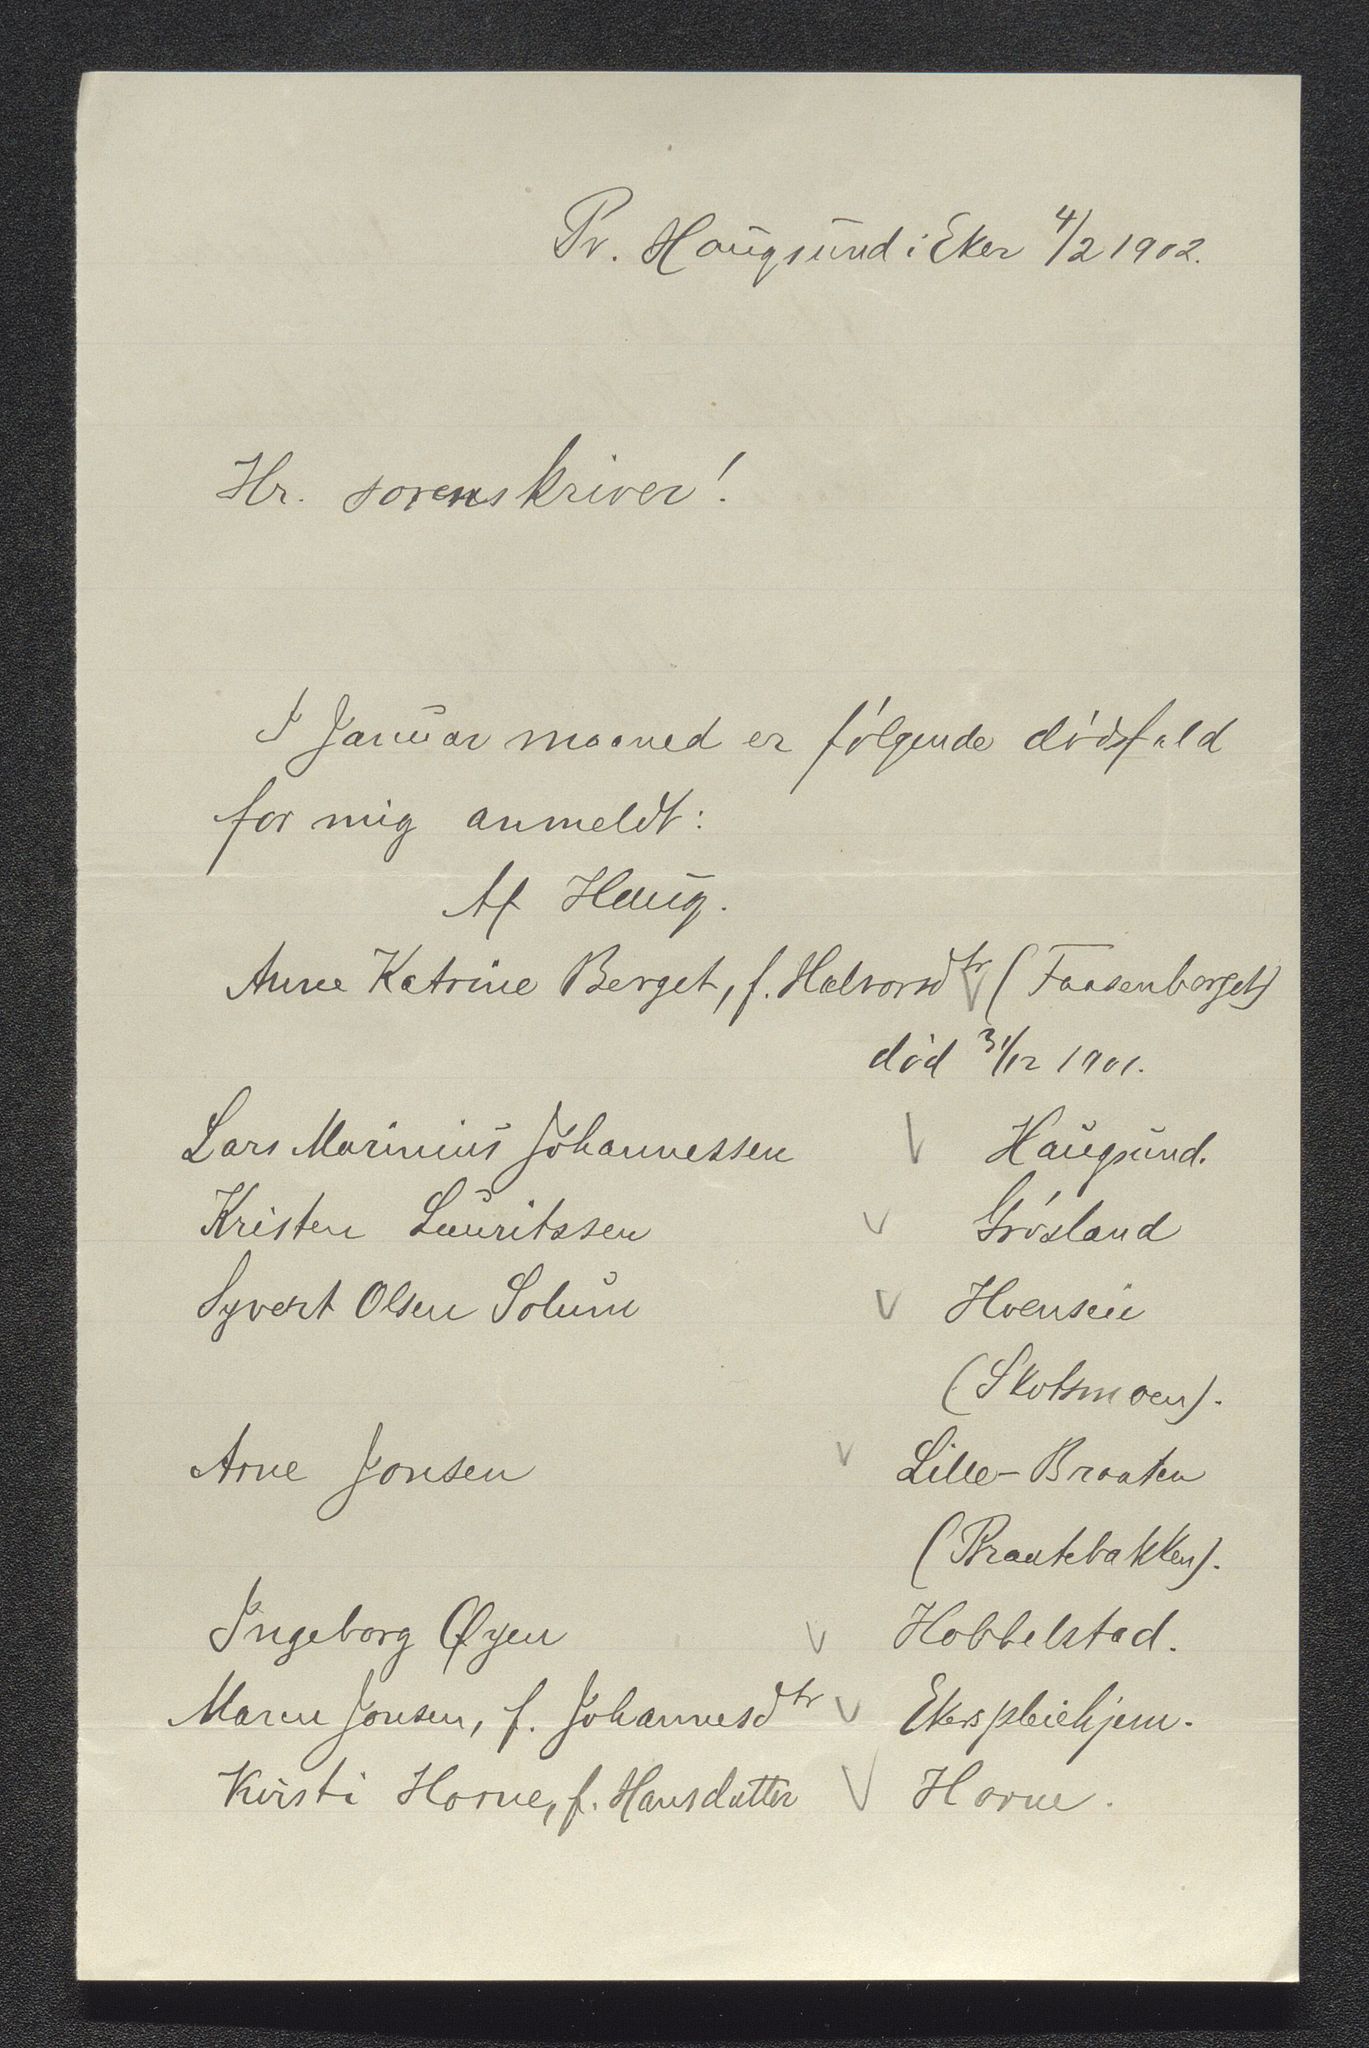 Pr. Haugsund i Eker 4/2 1902.
Hr. sorenskriver!
I Januar maaned er følgende dødsfald
for mig anmeldt:
Af Haug.
Anne Katrine Berget, f. Halvorsdtr (Faasenberget)
død 31/12 1901.
Lars Marinius Johannessen V Haugsund.
Kristen Lauritssen V Grøsland
Syvert Olsen Solum V Hoenseie
(Skotsmoen).
Arne Jonsen V Lille-Braaten
(Braatebakken).
Ingeborg Øyen V Hobbelstad.
Maren Jonsen, f. Johannesdtr V Ekers pleiehjem.
Kirsti Horne, f. Hansdatter V Horne.